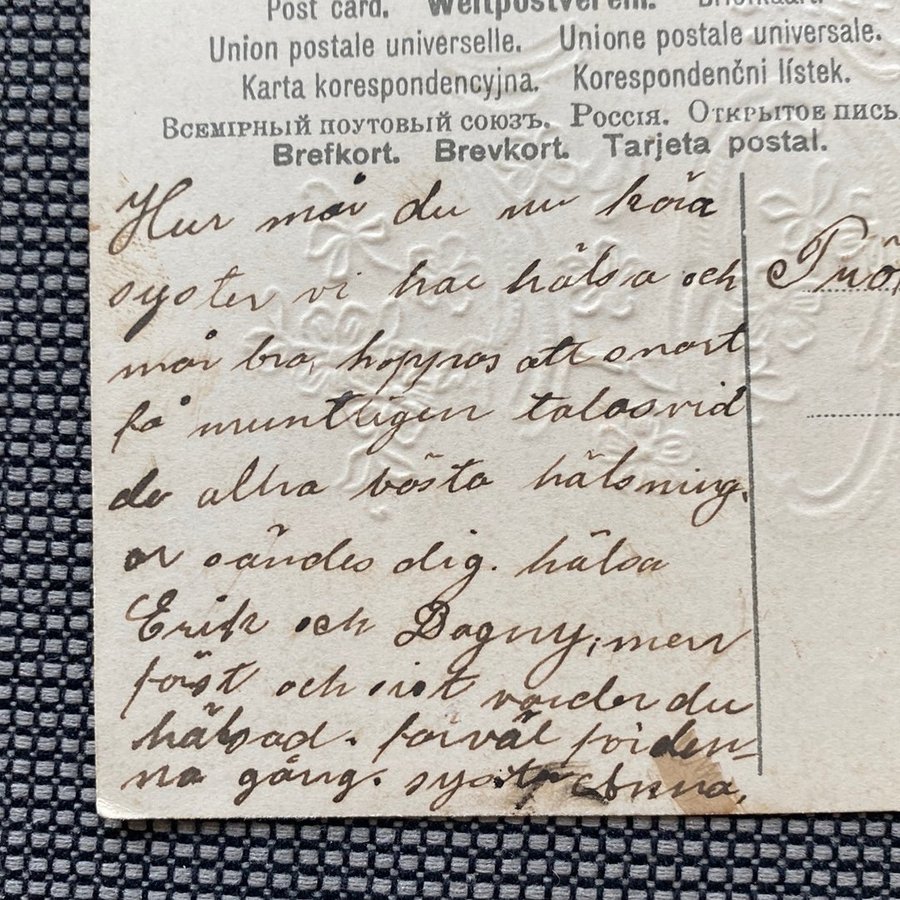 Post card. Weltpostverein. Briefkaart.
Union postale universelle. Unione postale universale.
Karta korespondencyjna. Korespondenční lístek.
Всемірный поутовый союзъ. Россія. Открытое пись
Brefkort. Brevkort. Tarjeta postal.
Hur mår du nu kära
syster vi har hälsa och
mår bra, hoppas att snart
få muntligen talas vid
de allra bästa hälsning.
ar sändes dig. hälsa
Erik och Dagny, men
först och sist varder du
hälsad. farväl förden-
na gång. syster Anna,